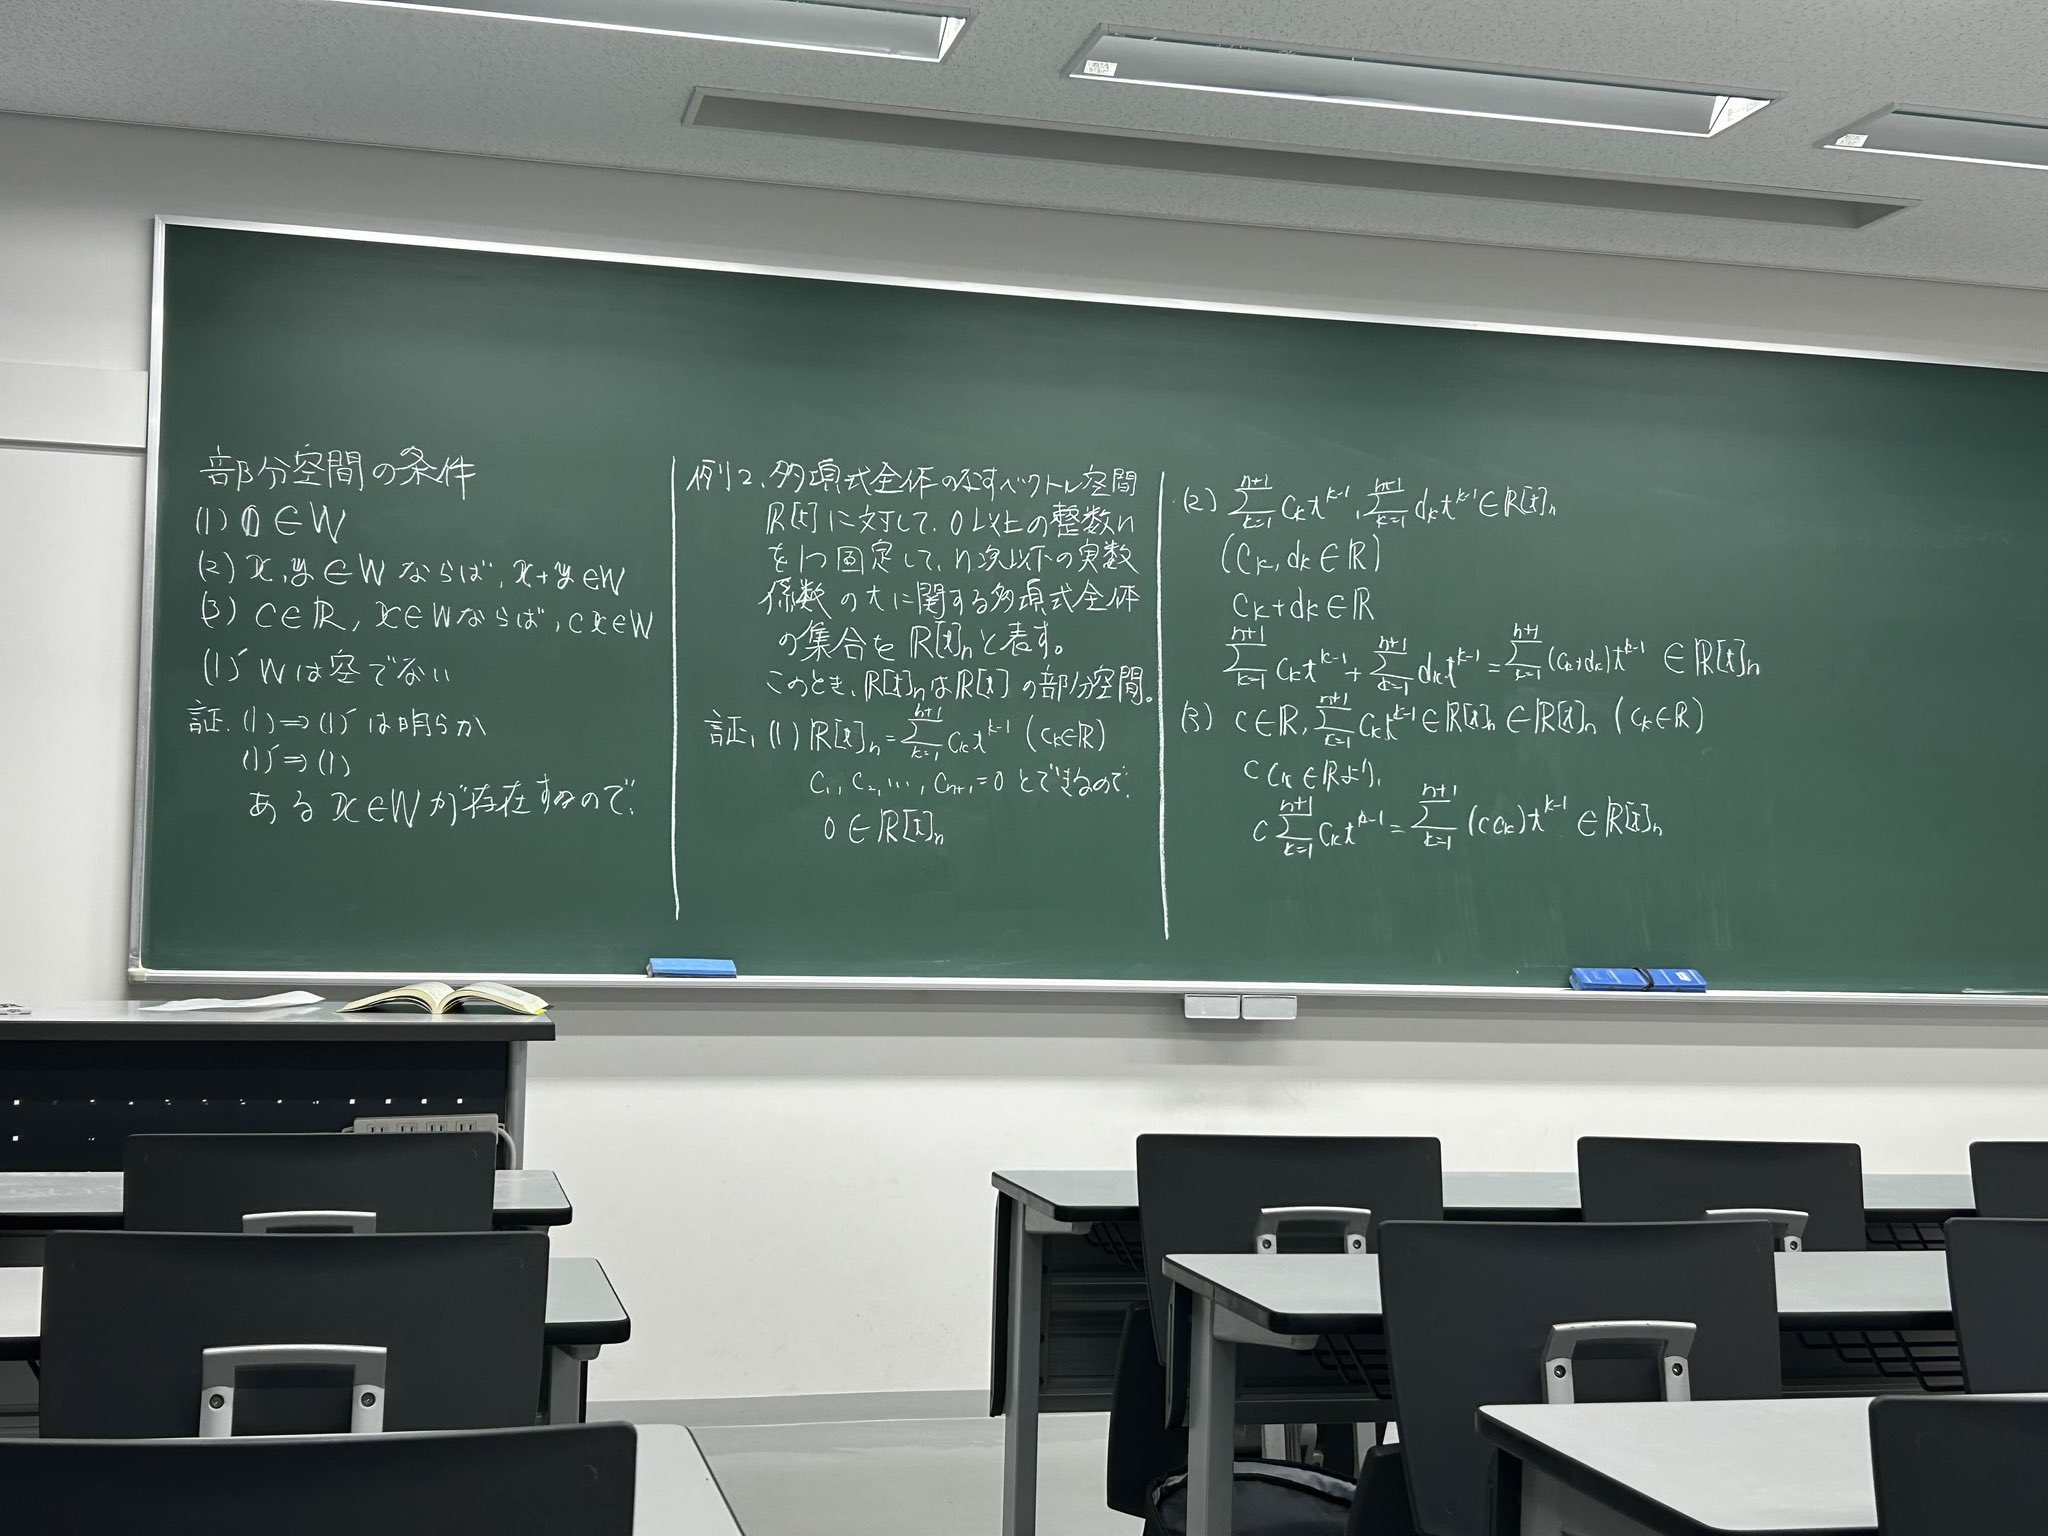 部分空間の条件
(1) 0 ∈ W
(2) x, y ∈ W ならば, x+y ∈ W
(3) c ∈ ℝ, x ∈ W ならば, cx ∈ W
(1)´ W は空でない
証. (1) ⇒ (1)´ は明らか
(1)´ ⇒ (1)
ある x ∈ W が存在するので.
例2. 多項式全体のなすベクトル空間
ℝ[t] に対して, 0以上の整数n
を1つ固定して, n次以下の実数
係数の t に関する多項式全体
の集合を ℝ[t]ₙ と表す。
このとき, ℝ[t]ₙ は ℝ[t] の部分空間。
証, (1) ℝ[t]ₙ = ∑_{k=1}^{n+1} c_k t^{k-1} (c_k ∈ ℝ)
c₁, c₂, …, c_{n+1} = 0 とできるので.
0 ∈ ℝ[t]ₙ
(2) ∑_{k=1}^{n+1} c_k t^{k-1}, ∑_{k=1}^{n+1} d_k t^{k-1} ∈ ℝ[t]ₙ
(c_k, d_k ∈ ℝ)
c_k + d_k ∈ ℝ
∑_{k=1}^{n+1} c_k t^{k-1} + ∑_{k=1}^{n+1} d_k t^{k-1} = ∑_{k=1}^{n+1} (c_k + d_k) t^{k-1} ∈ ℝ[t]ₙ
(3) c ∈ ℝ, ∑_{k=1}^{n+1} c_k t^{k-1} ∈ ℝ[t]ₙ ∈ ℝ[t]ₙ (c_k ∈ ℝ)
c c_k ∈ ℝ より,
c ∑_{k=1}^{n+1} c_k t^{k-1} = ∑_{k=1}^{n+1} (c c_k) t^{k-1} ∈ ℝ[t]ₙ